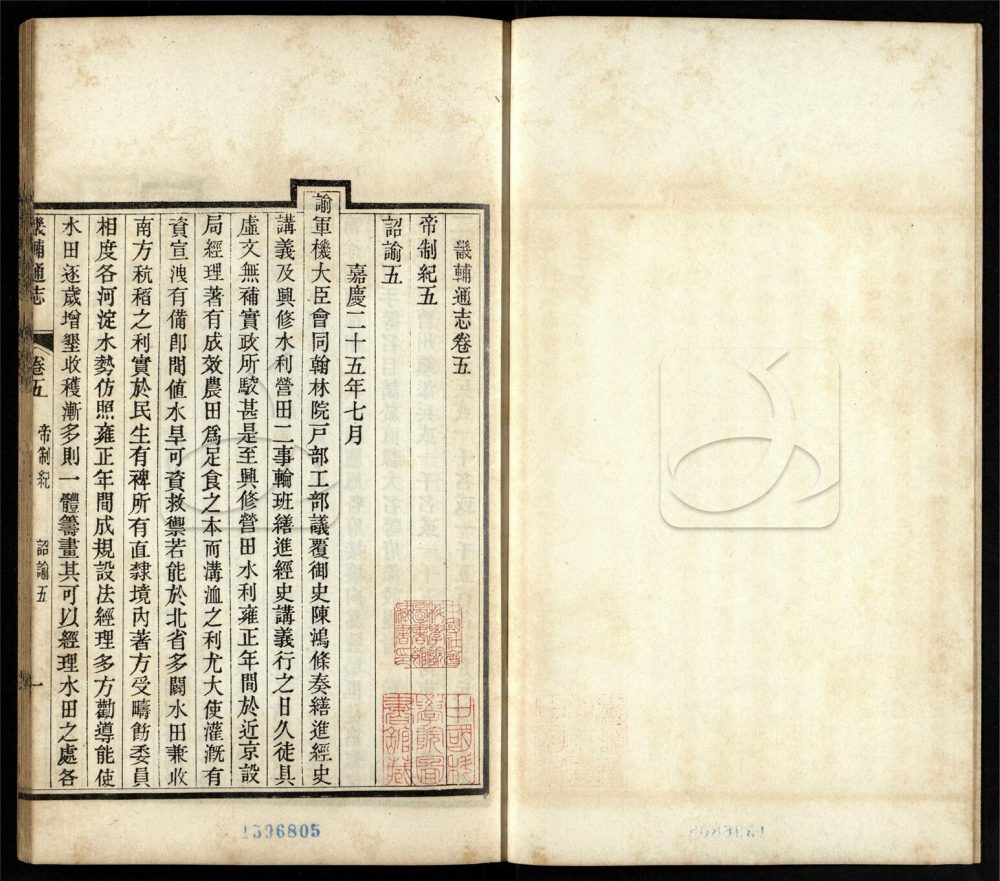 畿輔通志卷五
帝制紀五
詔諭五
嘉慶二十五年七月
諭軍機大臣會同翰林院戸部工部議覆御史陳鴻條奏繕進經史
講義及興修水利營田二事輪班繕進經史講義行之日久徒具
虛文無補實政所駮甚是至興修營田水利雍正年間於近京設
局經理著有成效農田爲足食之本而溝洫之利尤大使灌漑有
資宣洩有備卽間値水旱可資救禦若能於北省多闢水田兼收
南方秔稻之利實於民生有裨所有直隸境內著方受疇飭委員
相度各河淀水勢仿照雍正年間成規設法經理多方勸導能使
水田逐歲增墾收穫漸多則一體籌畫其可以經理水田之處各
畿輔通志 卷五 帝制紀 詔諭五 一
中國科
學院圖
書館藏
1396805